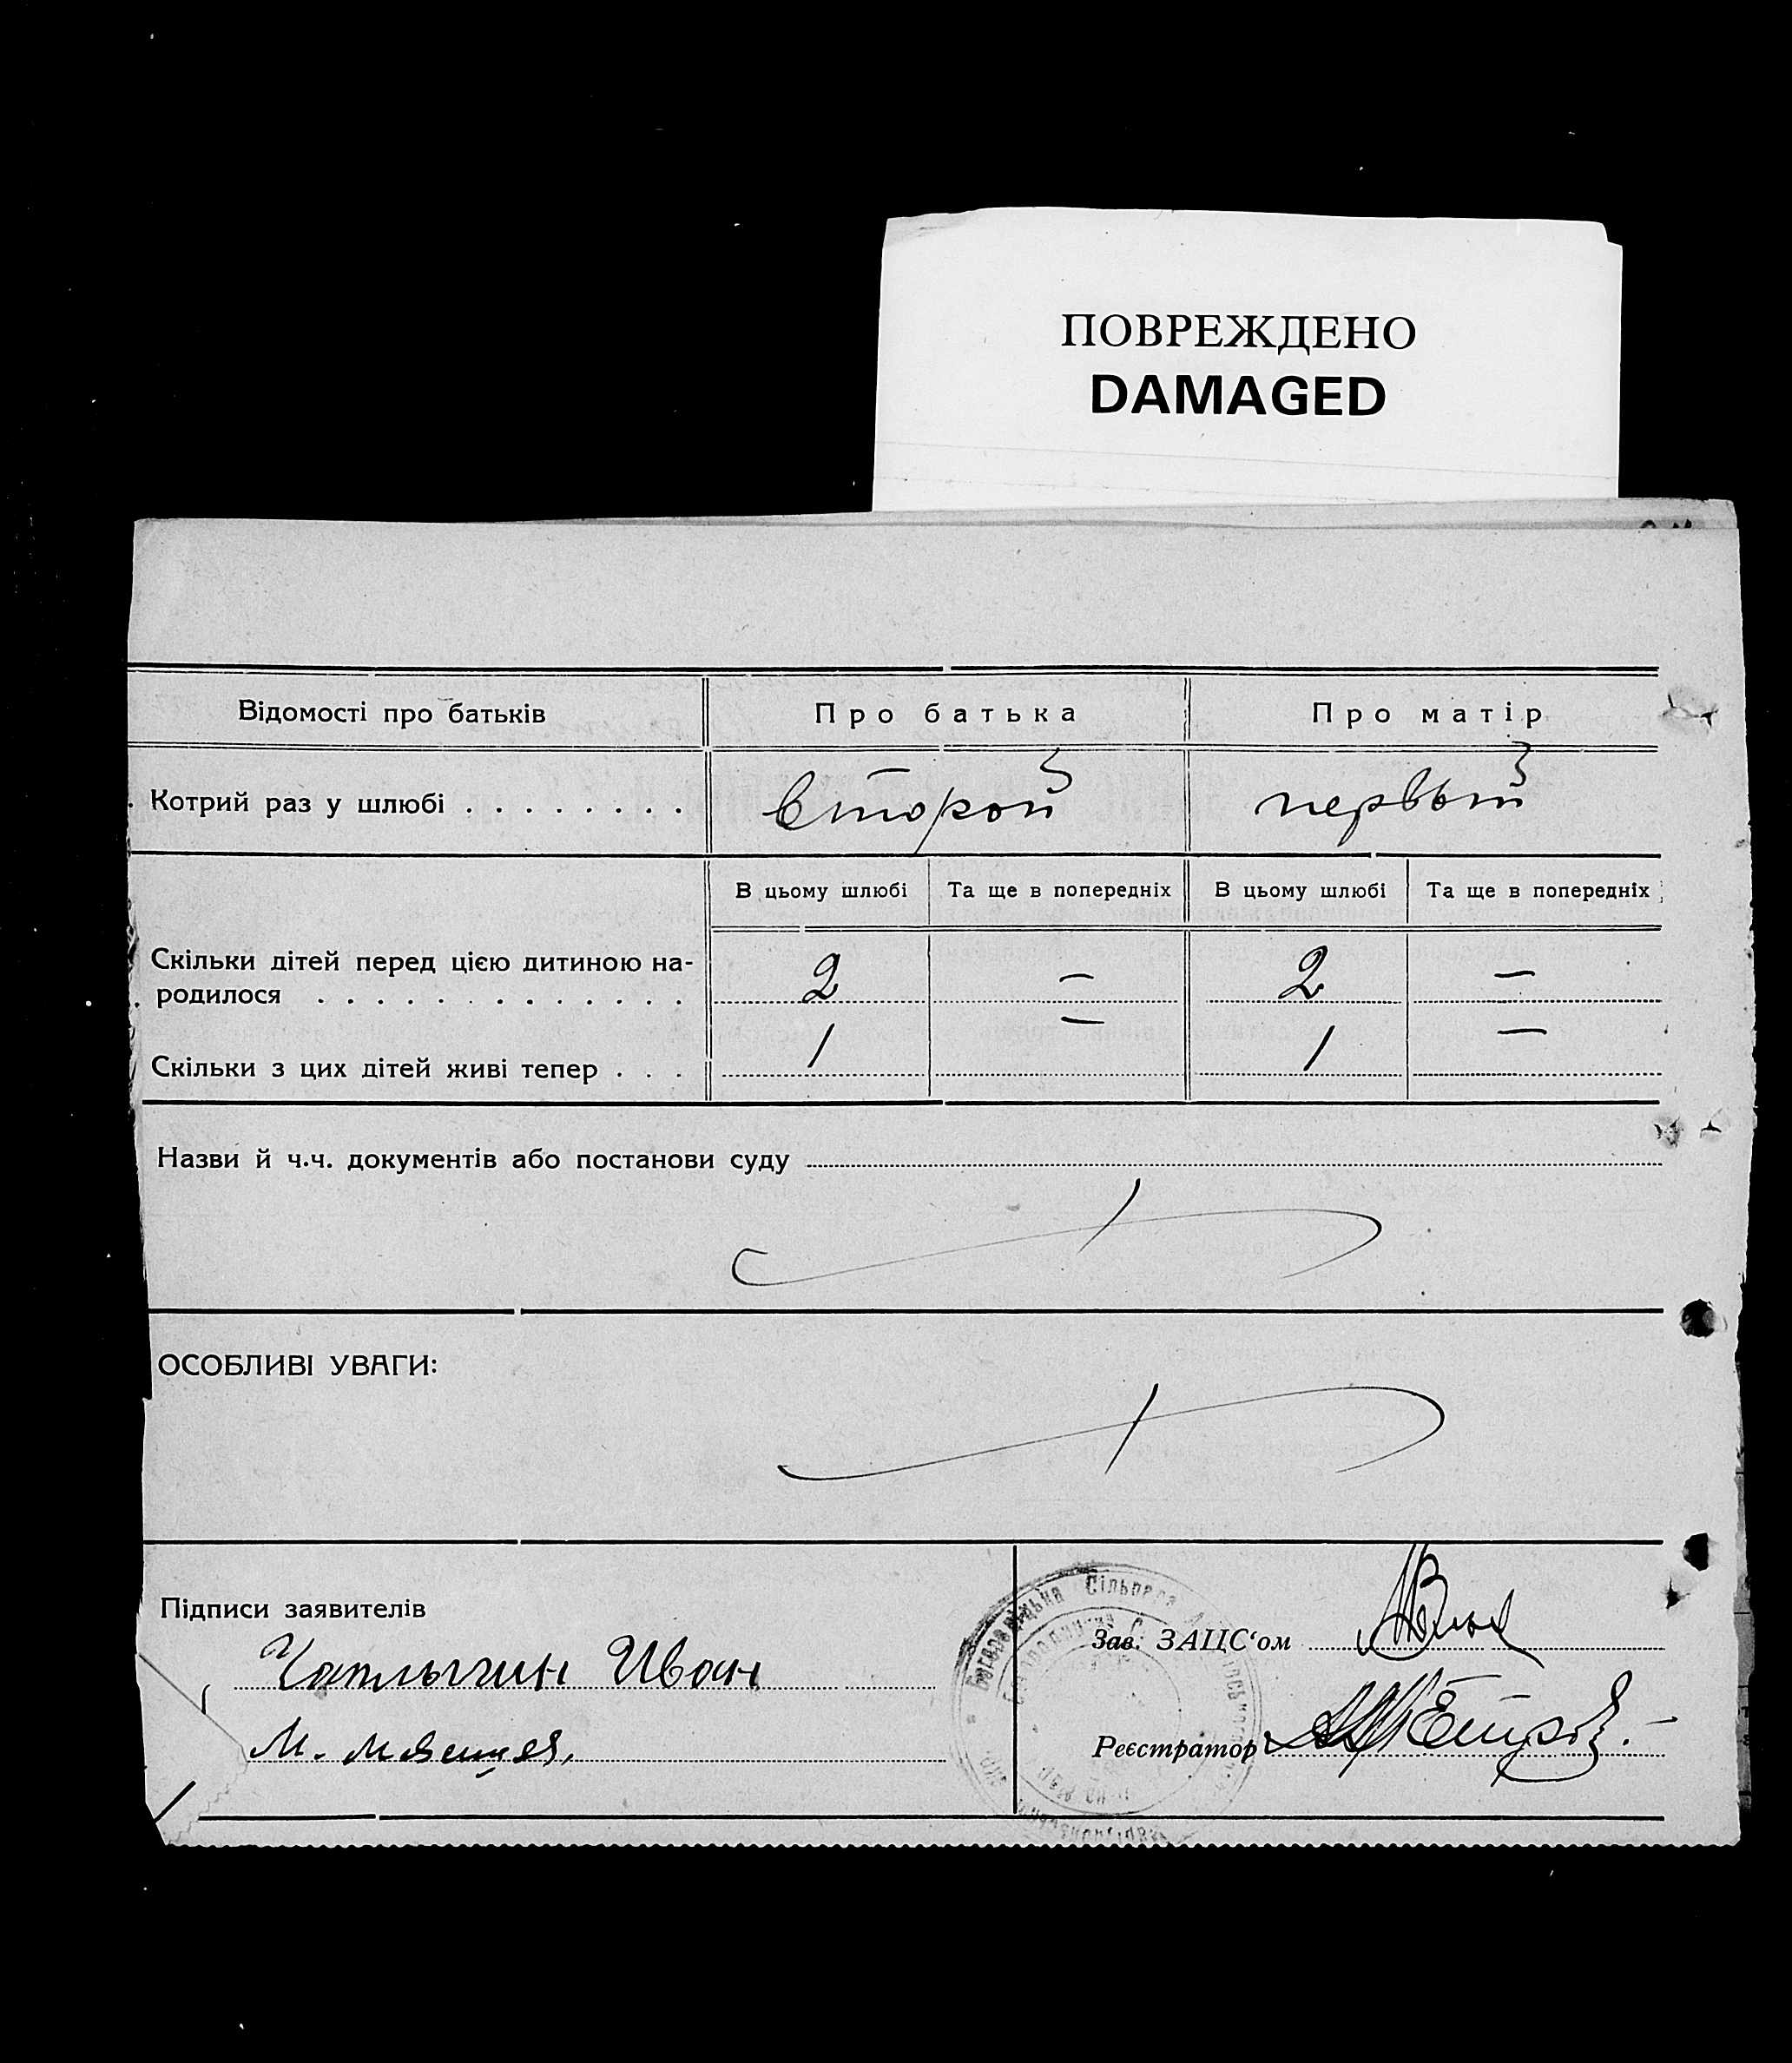 ПОВРЕЖДЕНО
DAMAGED
Відомості про батьків
Про батька
Про матір
Котрий раз у шлюбі . . . . . . . .
второй
первый
В цьому шлюбі
Та ще в попередніх
В цьому шлюбі
Та ще в попередніх
Скільки дітей перед цією дитиною на-
родилося . . . . . . . . . . . . . .
2
—
2
—
Скільки з цих дітей живі тепер . . .
1
—
1
—
Назви й ч.ч. документів або постанови суду
ОСОБЛИВІ УВАГИ:
Підписи заявителів
Чаплыгин Иван
М.
Зав. ЗАЦС'ом
Реєстратор
Сільрада